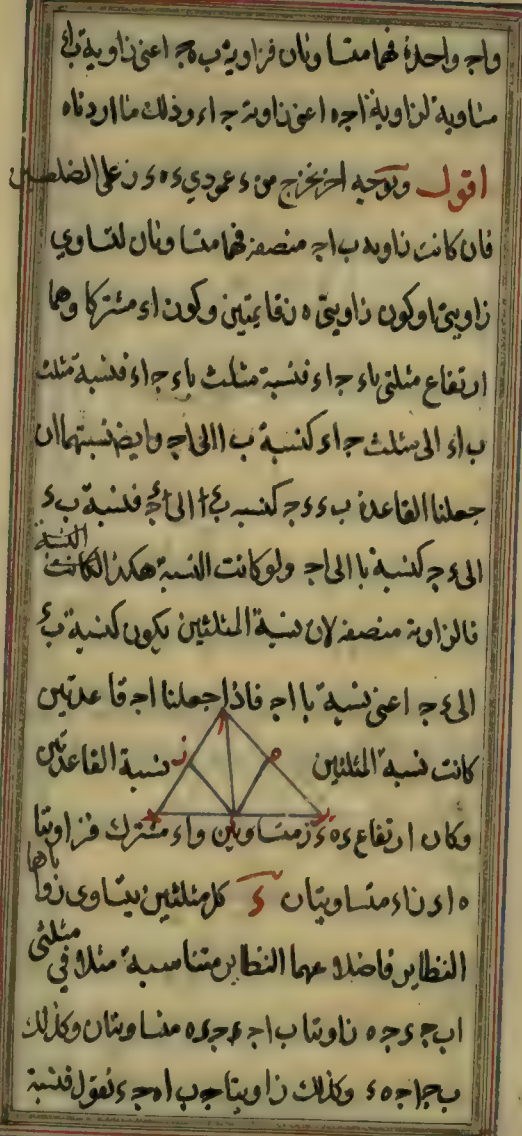 واحدة فهما متساويتان فزاوية ب ه ج اعنى زاوية ب ا ء
مساوية لزاوية ا ج ه اعنى زاوية ج ا ء وذلك ما اردناه
اقول وبوجه اخر نخرج من ء عمودي ء ه ء ز على الضلعين
فان كانت زاوية ب ا ج منصفة فهما متساويتان لتساوي
زاويتى ا وكون زاويتى ه ز قايمتين وكون ا ء مشتركا وهما
ارتفاع مثلثى ب ا ء ج ا ء فنسبة مثلث ب ا ء ج ا ء فنسبة مثلث
ب ا ء الى مثلث ج ا ء كنسبة ب ا الى ا ج وايضا نسبتهما ان
جعلنا القاعدة ب ء ء ج كنسبه ب ء الى ء ج فنسبة ب ء
الى ء ج كنسبة ب ا الى ا ج ولو كانت النسبة هكذا لكانت النسبة
فالزاوية منصفه لان نسبة المثلثين يكون كنسبة ب ء
الى ء ج اعنى نسبة ب ا ا ج فاذا جعلنا ا ج قاعدتين
كانت نسبة المثلثين نسبة القاعدتين
وكان ارتفاع ء ه ء ز متساويين و ا ء مشترك فزاويتا
ه ا ء ز ا ء متساويتان ء كل مثلثين يتساوى زواياهما
النظاير فاضلاعهما النظاير متناسبة مثلا في مثلثى
ا ب ج ء ج ه زاويتا ب ا ج ء ج ء ه متساويتان وكذلك
ب ج ا ج ه ء وكذلك زاويتا ج ب ا ه ج ء نقول فنسبة